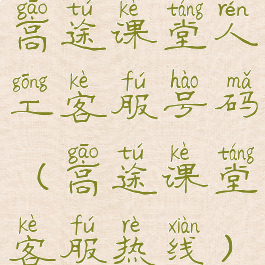 gāo tú kè táng rén
高途课堂人
gōng kè fú hào mǎ
工客服号码
gāo tú kè táng
（高途课堂
kè fú rè xiàn
客服热线）